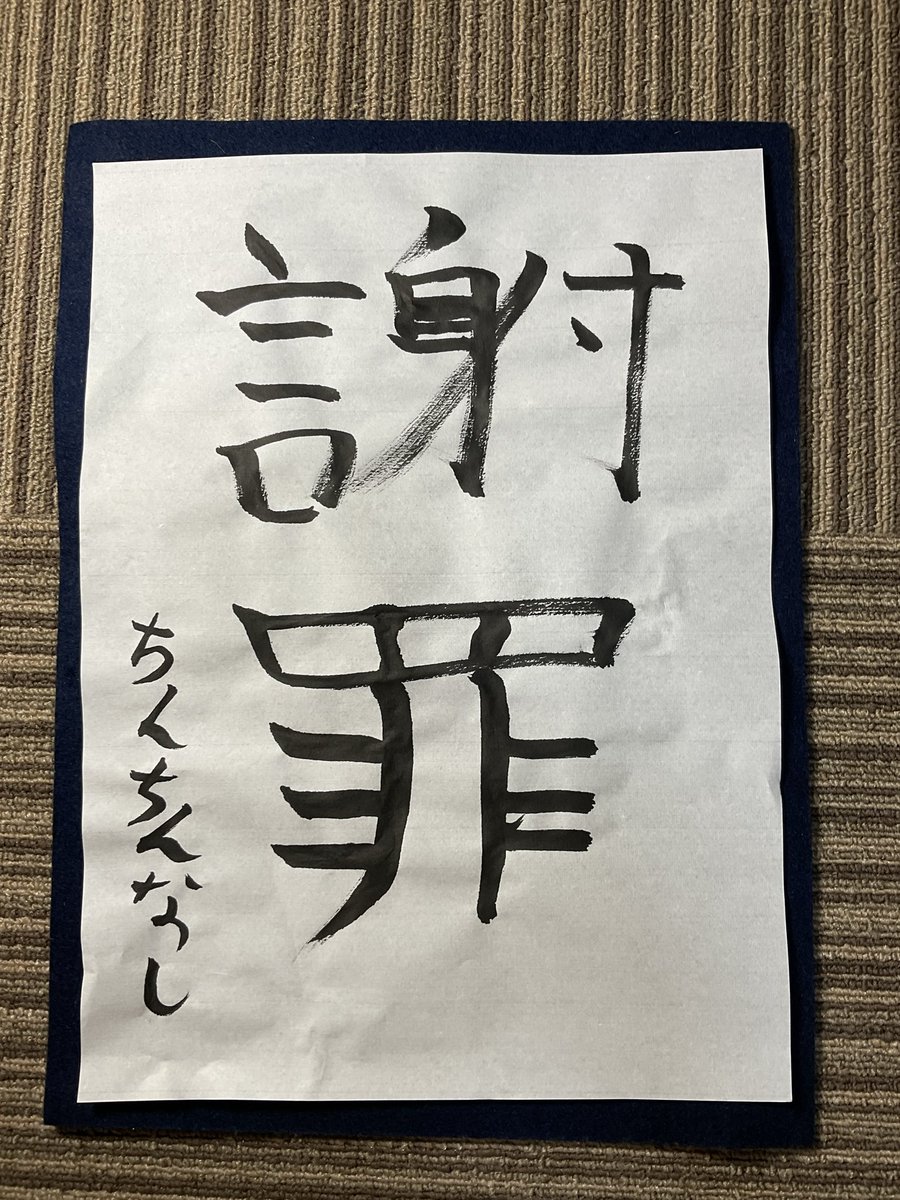 謝罪
ちんちんなし